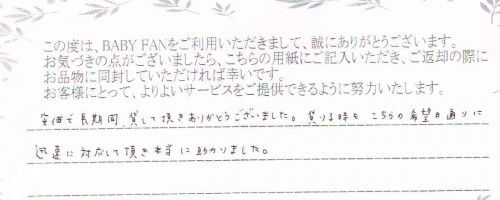 この度は、BABY FANをご利用いただきまして、誠にありがとうございます。
お気づきの点がございましたら、こちらの用紙にご記入いただき、ご返却の際に
お品物に同封していただければ幸いです。
お客様にとって、よりよいサービスをご提供できるように努力いたします。
安価で長期間、貸して頂きありがとうございました。借りる時も こちらの希望日通りに
迅速に対応して頂き本当に助かりました。